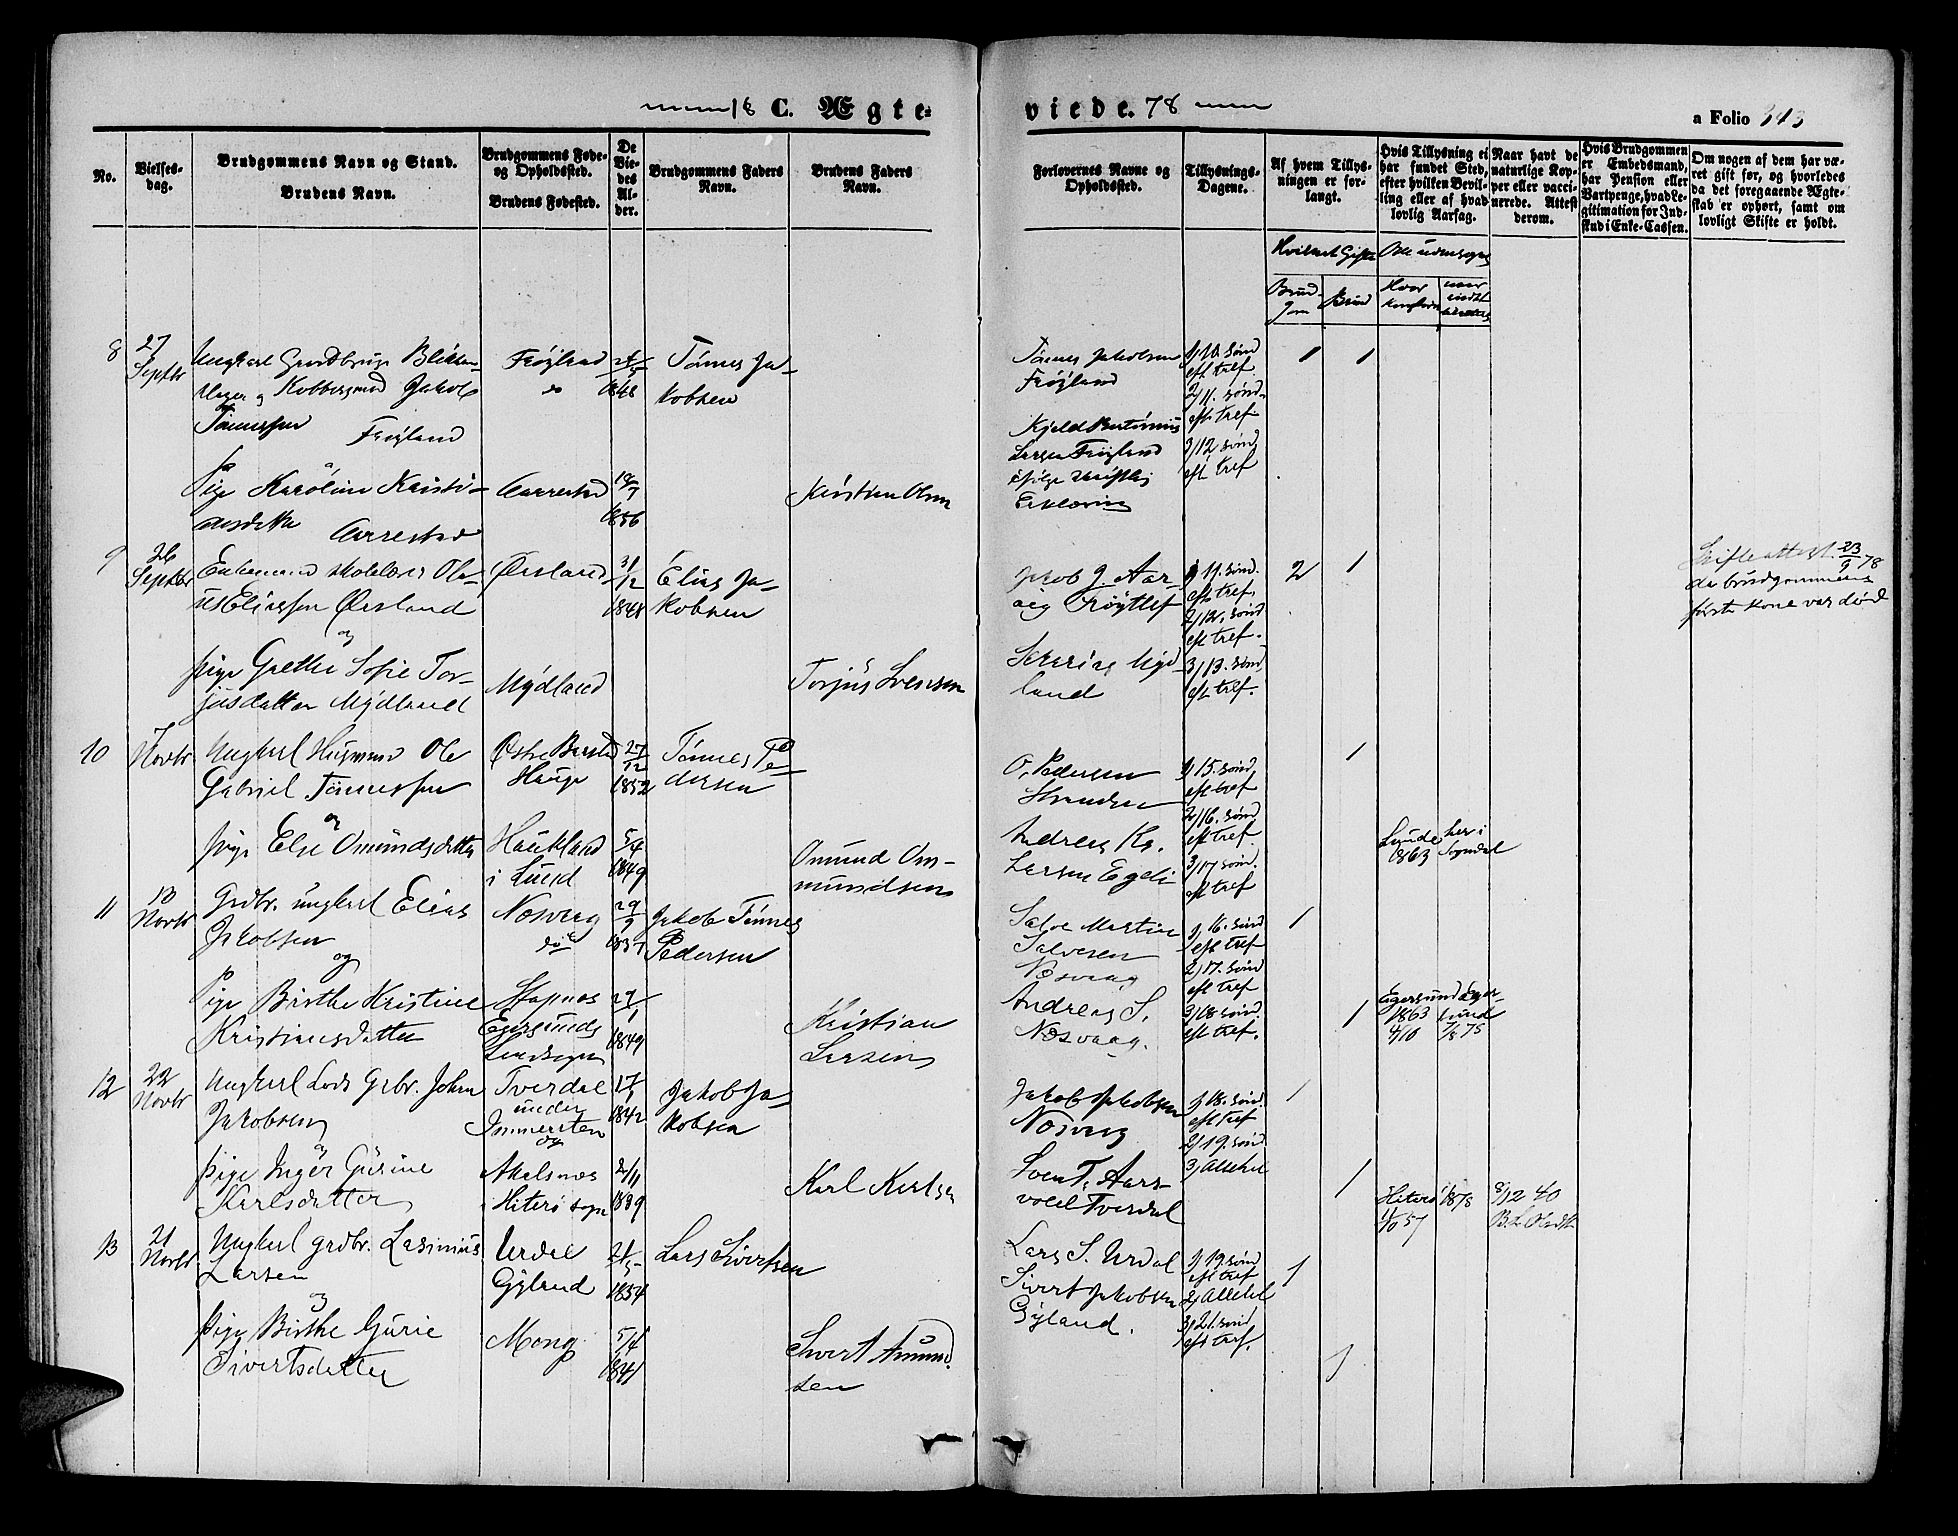 18 C. Ægte-
viede. 78
a Folio 343
No.
Vielses-
dag.
Brudgommens Navn og Stand.
Brudens Navn.
Brudgommens Føde-
og Opholdssted.
Brudens Fødested.
De
Vie-
des
Al-
der.
Brudgommens Faders
Navn.
Brudens Faders
Navn.
Forlovernes Navne og
Opholdssted.
Tillysnings-
Dagene.
Af hvem Tillys-
ningen er for-
langt.
Hvis Tillysning ei
har fundet Sted,
efter hvilken Bevil-
ling eller af hvad
lovlig Aarsag.
Naar havt de
naturlige Kop-
per eller vacci-
nerede. Attest
derom.
Hvis Brudgommen
er Embedsmand,
har Pension eller
Vartpenge, hvad Le-
gitimation for Ind-
skud i Enke-Cassen.
Om nogen af dem har væ-
ret gift før, og hvorledes
da det foregaaende Ægte-
skab er ophørt, samt om
lovligt Skifte er holdt.
Brud-
gom
Brud
Hvor
8
27
Septbr
Ungkarl Gaardbruger
og Kobbersmed Jakob
Tønnessen Frøyland
Frøyland
do
24/5
1848
Tønnes Ja-
kobsen
Tønnes Jakobsen
Frøyland
Kjeld Bertinius
Larsen Frøyland
ifølge skriftlig
Erklæring
1/ 10. sønd
eft tref
2/ 11. sønd
eft. tref
3/ 12 sønd
eft tref
1
1
og
Pige Karoline Kristi-
ansdatter Aarrestad
Aarrestad
18/7
1856
Kristian Olsen
9
26
Septbr
Enkemand skolelærer Ola-
us Eliassen Ørsland
Ørsland
31/12
1848
Elias Ja-
kobsen
Jakob J. Aar-
1/ 11. sønd.
eft tref.
2/ 12. sønd
eft tref.
3/ 13. sønd
eft tref.
2
1
Skifteattest 23/9 78
da brudgommens
første kone var død
og
pige Grethe Sofie Tor-
jusdatter Mydland
Mydland
Torjus Svensen
Sakarias Myd-
land
10
7
Novbr
Ungkarl Husmand Ole
Gabriel Tønnessen
Østre
Hauge
27/12
1852
Tønnes Pe-
dersen
O. Pedersen
1/ 15. sønd
eft tref
2/ 16. sønd
eft tref
3/ 17 sønd.
eft tref
1
og
pige Else Omundsdatter
Haukland
i Lund
5/4
1849
Omund Om-
mundsen
Andreas Kr.
Larsen Egdi
Lunde
1863
her i
Sogndal
11
13
Novbr
Grdbr. ungkarl Elias
Jakobsen
Nosvaag
do
29/9
1857
Jakob Tønnes
Pedersen
Salve Martin
Salvesen
Nosvaag
1/ 16. sønd
eft tref
2/ 17. sønd
eft tref
3/ 18 sønd.
eft tref.
1
og
Pige Birthe Kristine
Kristiansdatter
Stapnes
Egersunds
Landsogn
29/1
1849
Kristian
Larsen
Andreas S.
Nosvaag.
1
Egersund
1863
4/10
Eger-
sund
7/8 75
12
22
Novbr
Ungkarl Lods Grbr. Johan
Jakobsen
Tverdal
under
Immersten
17/1
1842
Jakob Ja-
kobsen
Jakob Jakobsen
Nosvaag
1/ 18. sønd.
eft tref
2/ 19. sønd
3/ Allehel
1
og
pige Inger Gurine
Karlsdatter
Akelsnes
i Hiterø sogn
2/11
1839
Karl Karlsen
Sven T. Aars-
vold Tverdal
1
Hiterø
11/10 57
1878
8/12 40
13
21
Novbr
Ungkarl grdbr. Lasinius
Larsen
Urdal
Gyland
21/5
1854
Lars Sivertsen
Lars S. Urdal
Sivert Jakobsen
Gyland.
1/ 19. sønd
eft tref
2/ Allehel
3/ 21. sønd
eft tref.
1
og
pige Birthe Gurie
Sivertsdatter
Mong
5/4
1841
Sivert Amund-
sen
1